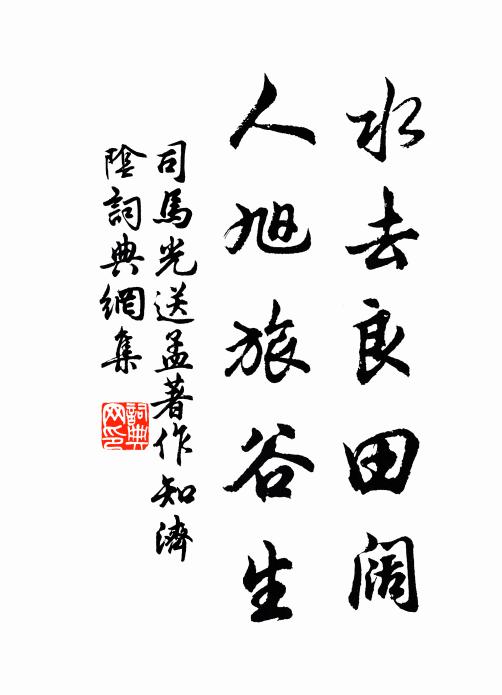 水去良田阔
人旭旅谷生
司馬光送孟著作知濟
陰詞典網集
詞典
网印